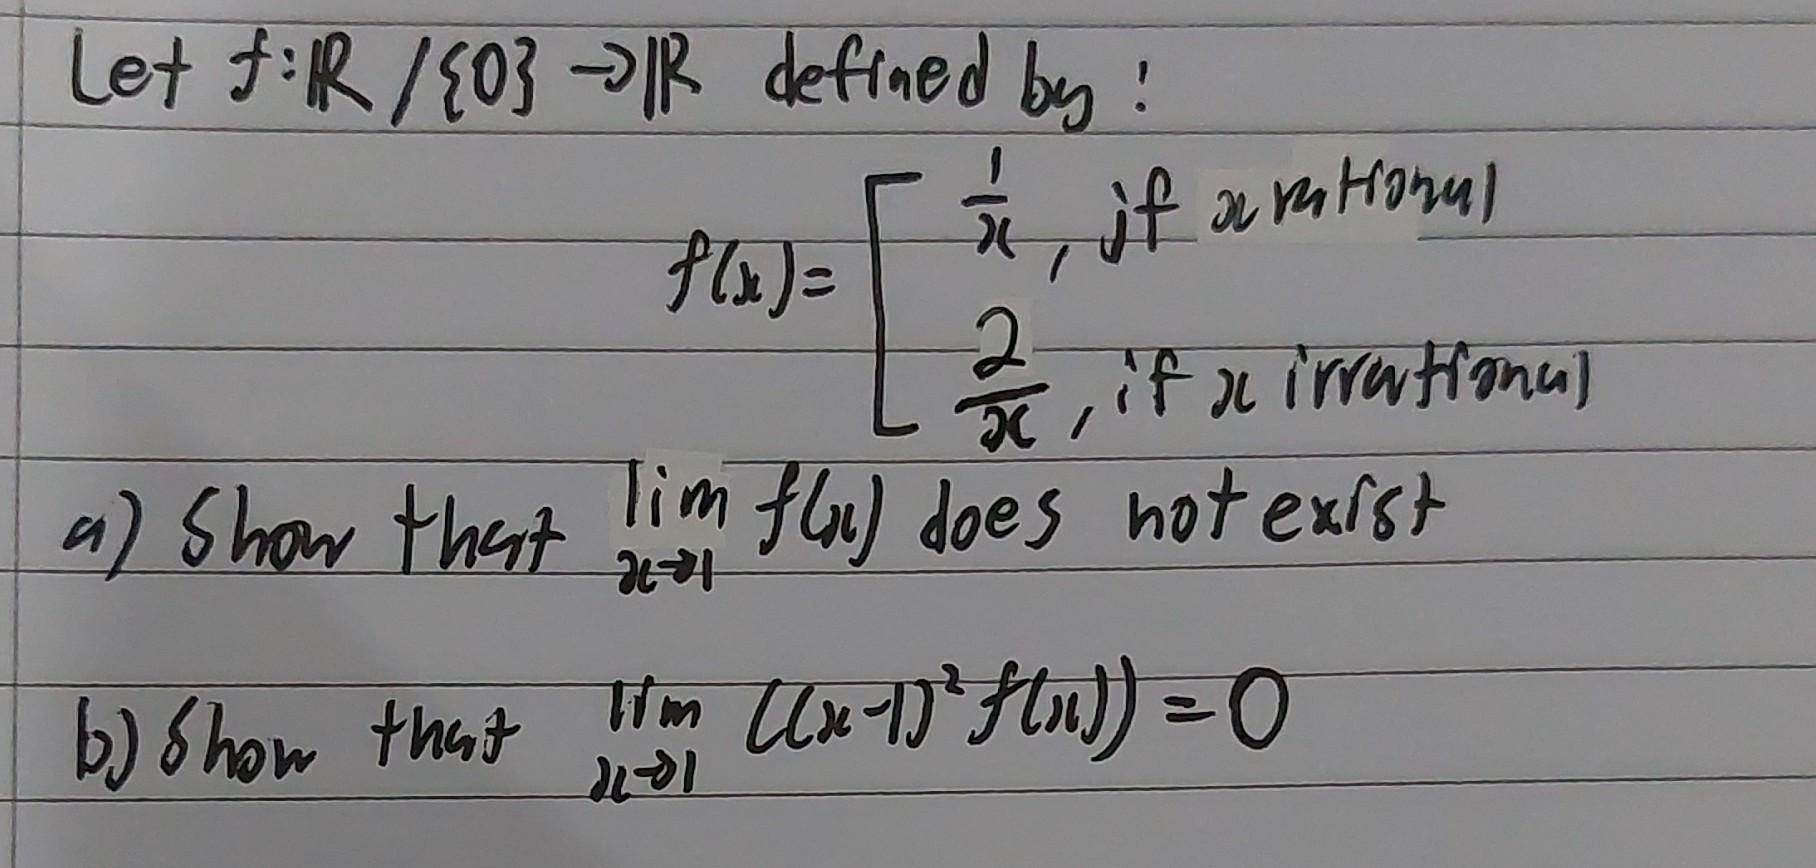 Let f:ℝ/{0}→ℝ defined by:
f(x)= [ 1/x, if x rational
2/x, if x irrational
a) Show that lim x→1 f(x) does not exist
b) Show that lim x→1 ((x-1)² f(x)) = 0